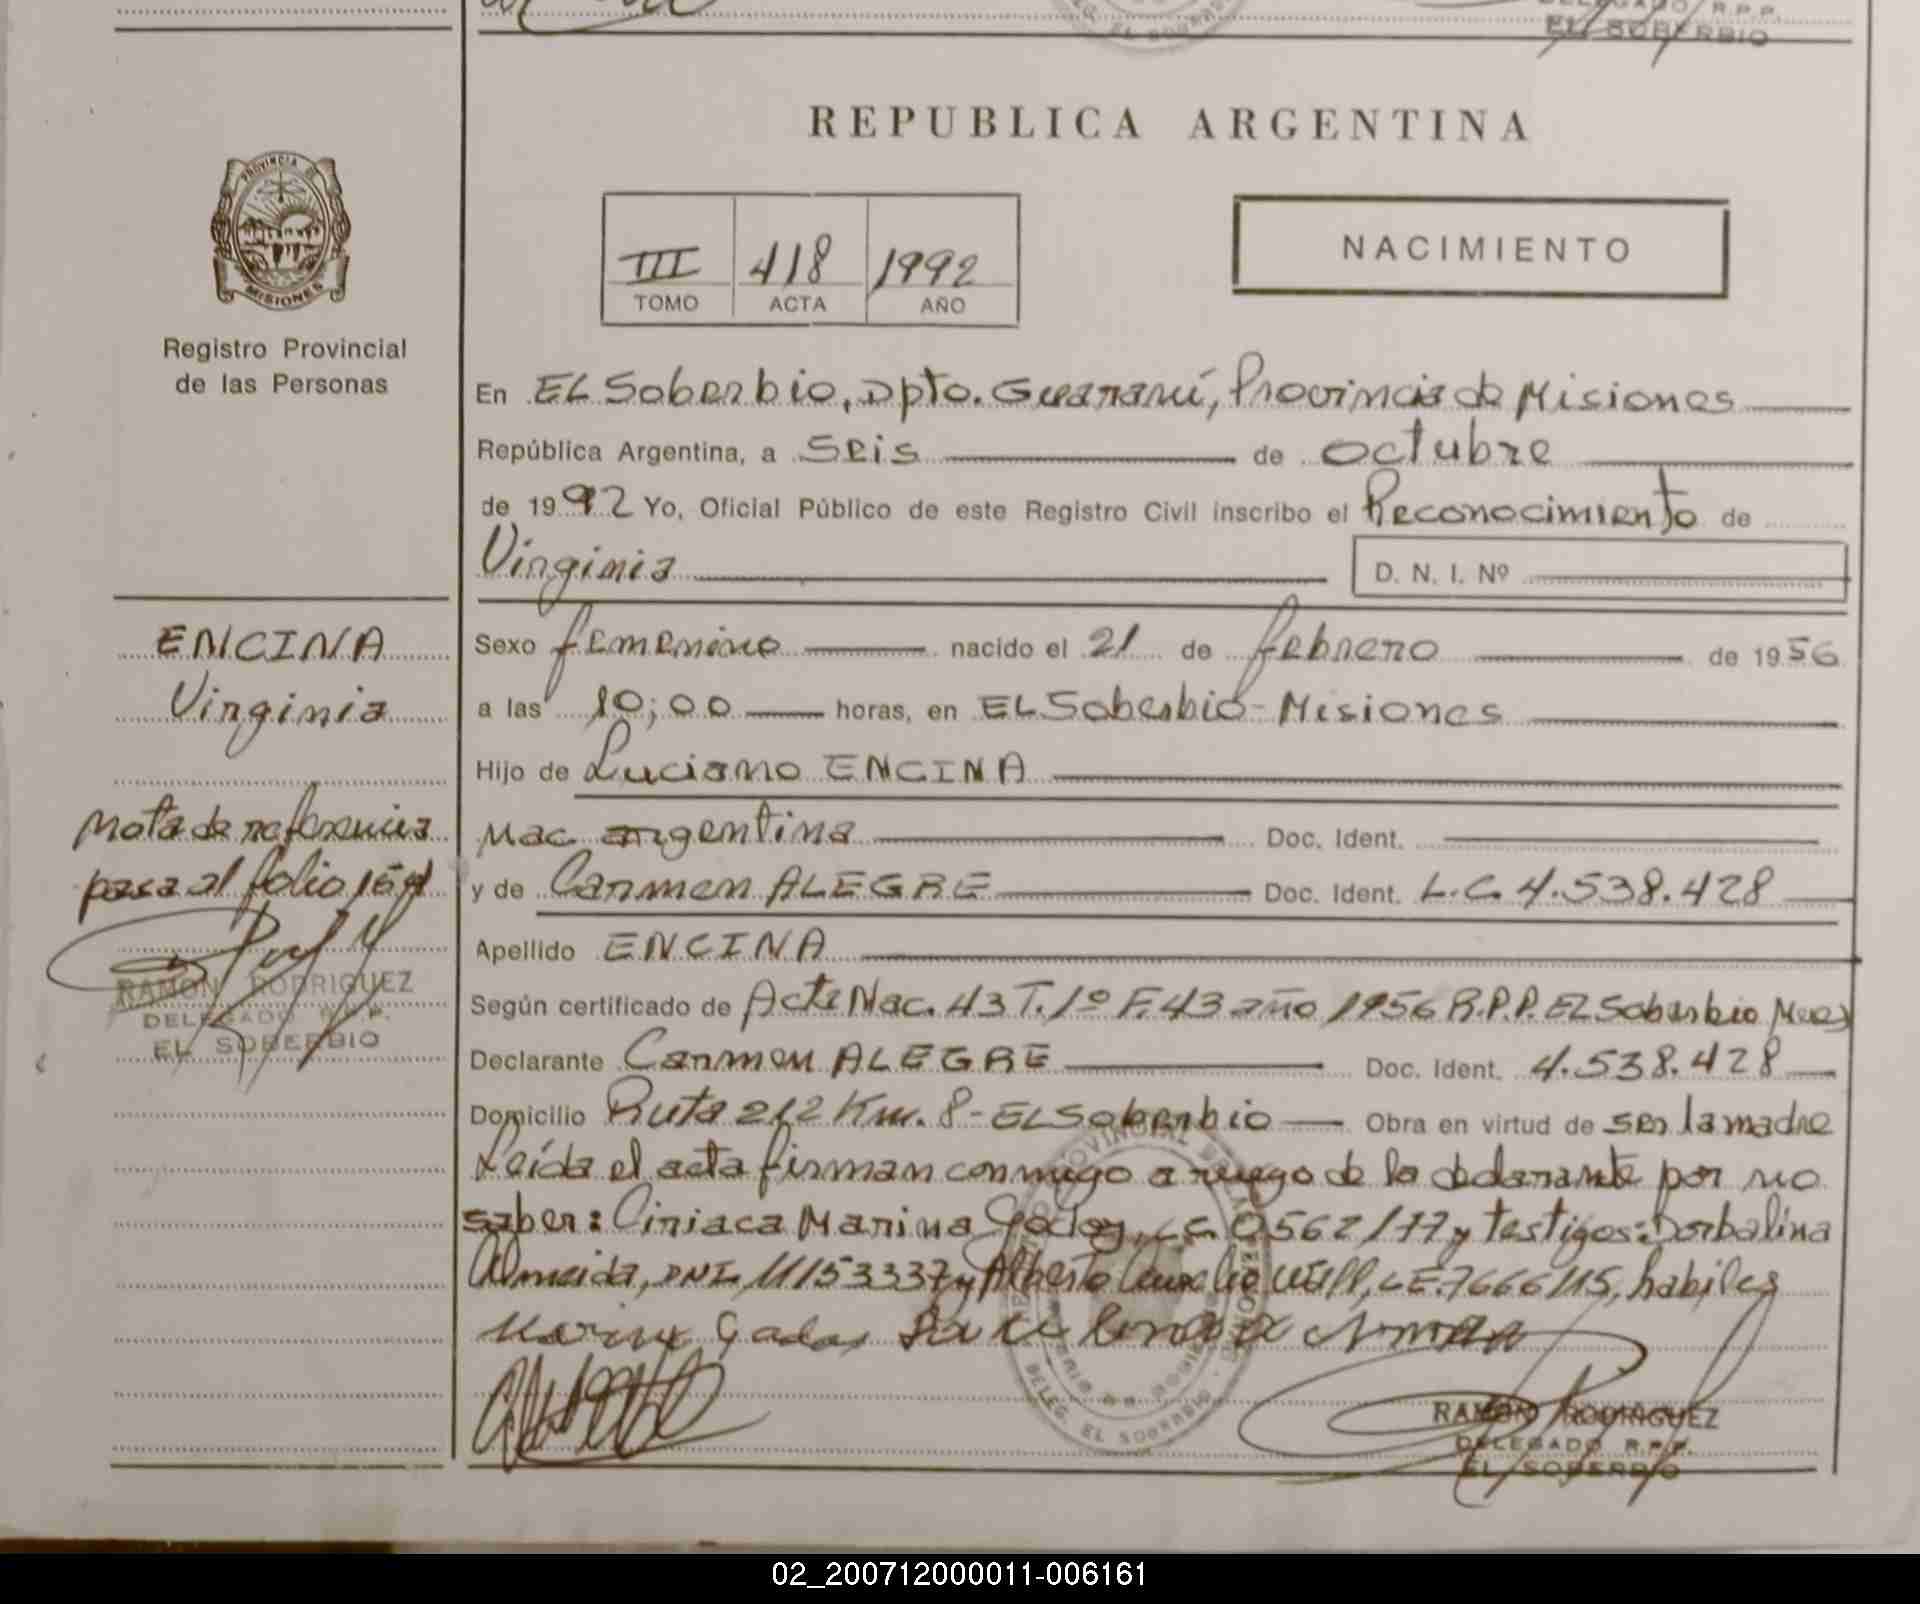 DELEGADO R.P.P.
EL SOBERBIO
REPUBLICA ARGENTINA
PROVINCIA DE
MISIONES
Registro Provincial
de las Personas
III 418 1992
TOMO ACTA AÑO
NACIMIENTO
En EL Soberbio, Dpto. Guaraní, Provincia de Misiones
República Argentina, a Seis de octubre
de 1992 Yo, Oficial Público de este Registro Civil inscribo el Reconocimiento de
Virginia D. N. I. Nº
Sexo femenino nacido el 21 de febrero de 1956
a las 10;00 horas, en EL Soberbio - Misiones
Hijo de Luciano ENCINA
Nac. argentina Doc. Ident.
y de Carmen ALEGRE Doc. Ident. L.C. 4.538.428
Apellido ENCINA
Según certificado de Acta Nac. 43 T. 1º F. 43 año 1956 R.P.P. EL Soberbio
Declarante Carmen ALEGRE Doc. Ident. 4.538.428
Domicilio Ruta 212 Km. 8 - EL Soberbio Obra en virtud de ser la madre
Leída el acta firman conmigo a ruego de la declarante por no
saber: Ciriaca Marina Godoy, LC 0562177 y testigos: Dorbalina
Almeida, DNI 11153337 y Alberto LE. 7666115, habiles
RAMON RODRIGUEZ
DELEGADO R.P.P.
EL SOBERBIO
ENCINA
Virginia
Nota de referencia
pasa al folio
RAMON RODRIGUEZ
DELEGADO R.P.P.
EL SOBERBIO
02_200712000011-006161